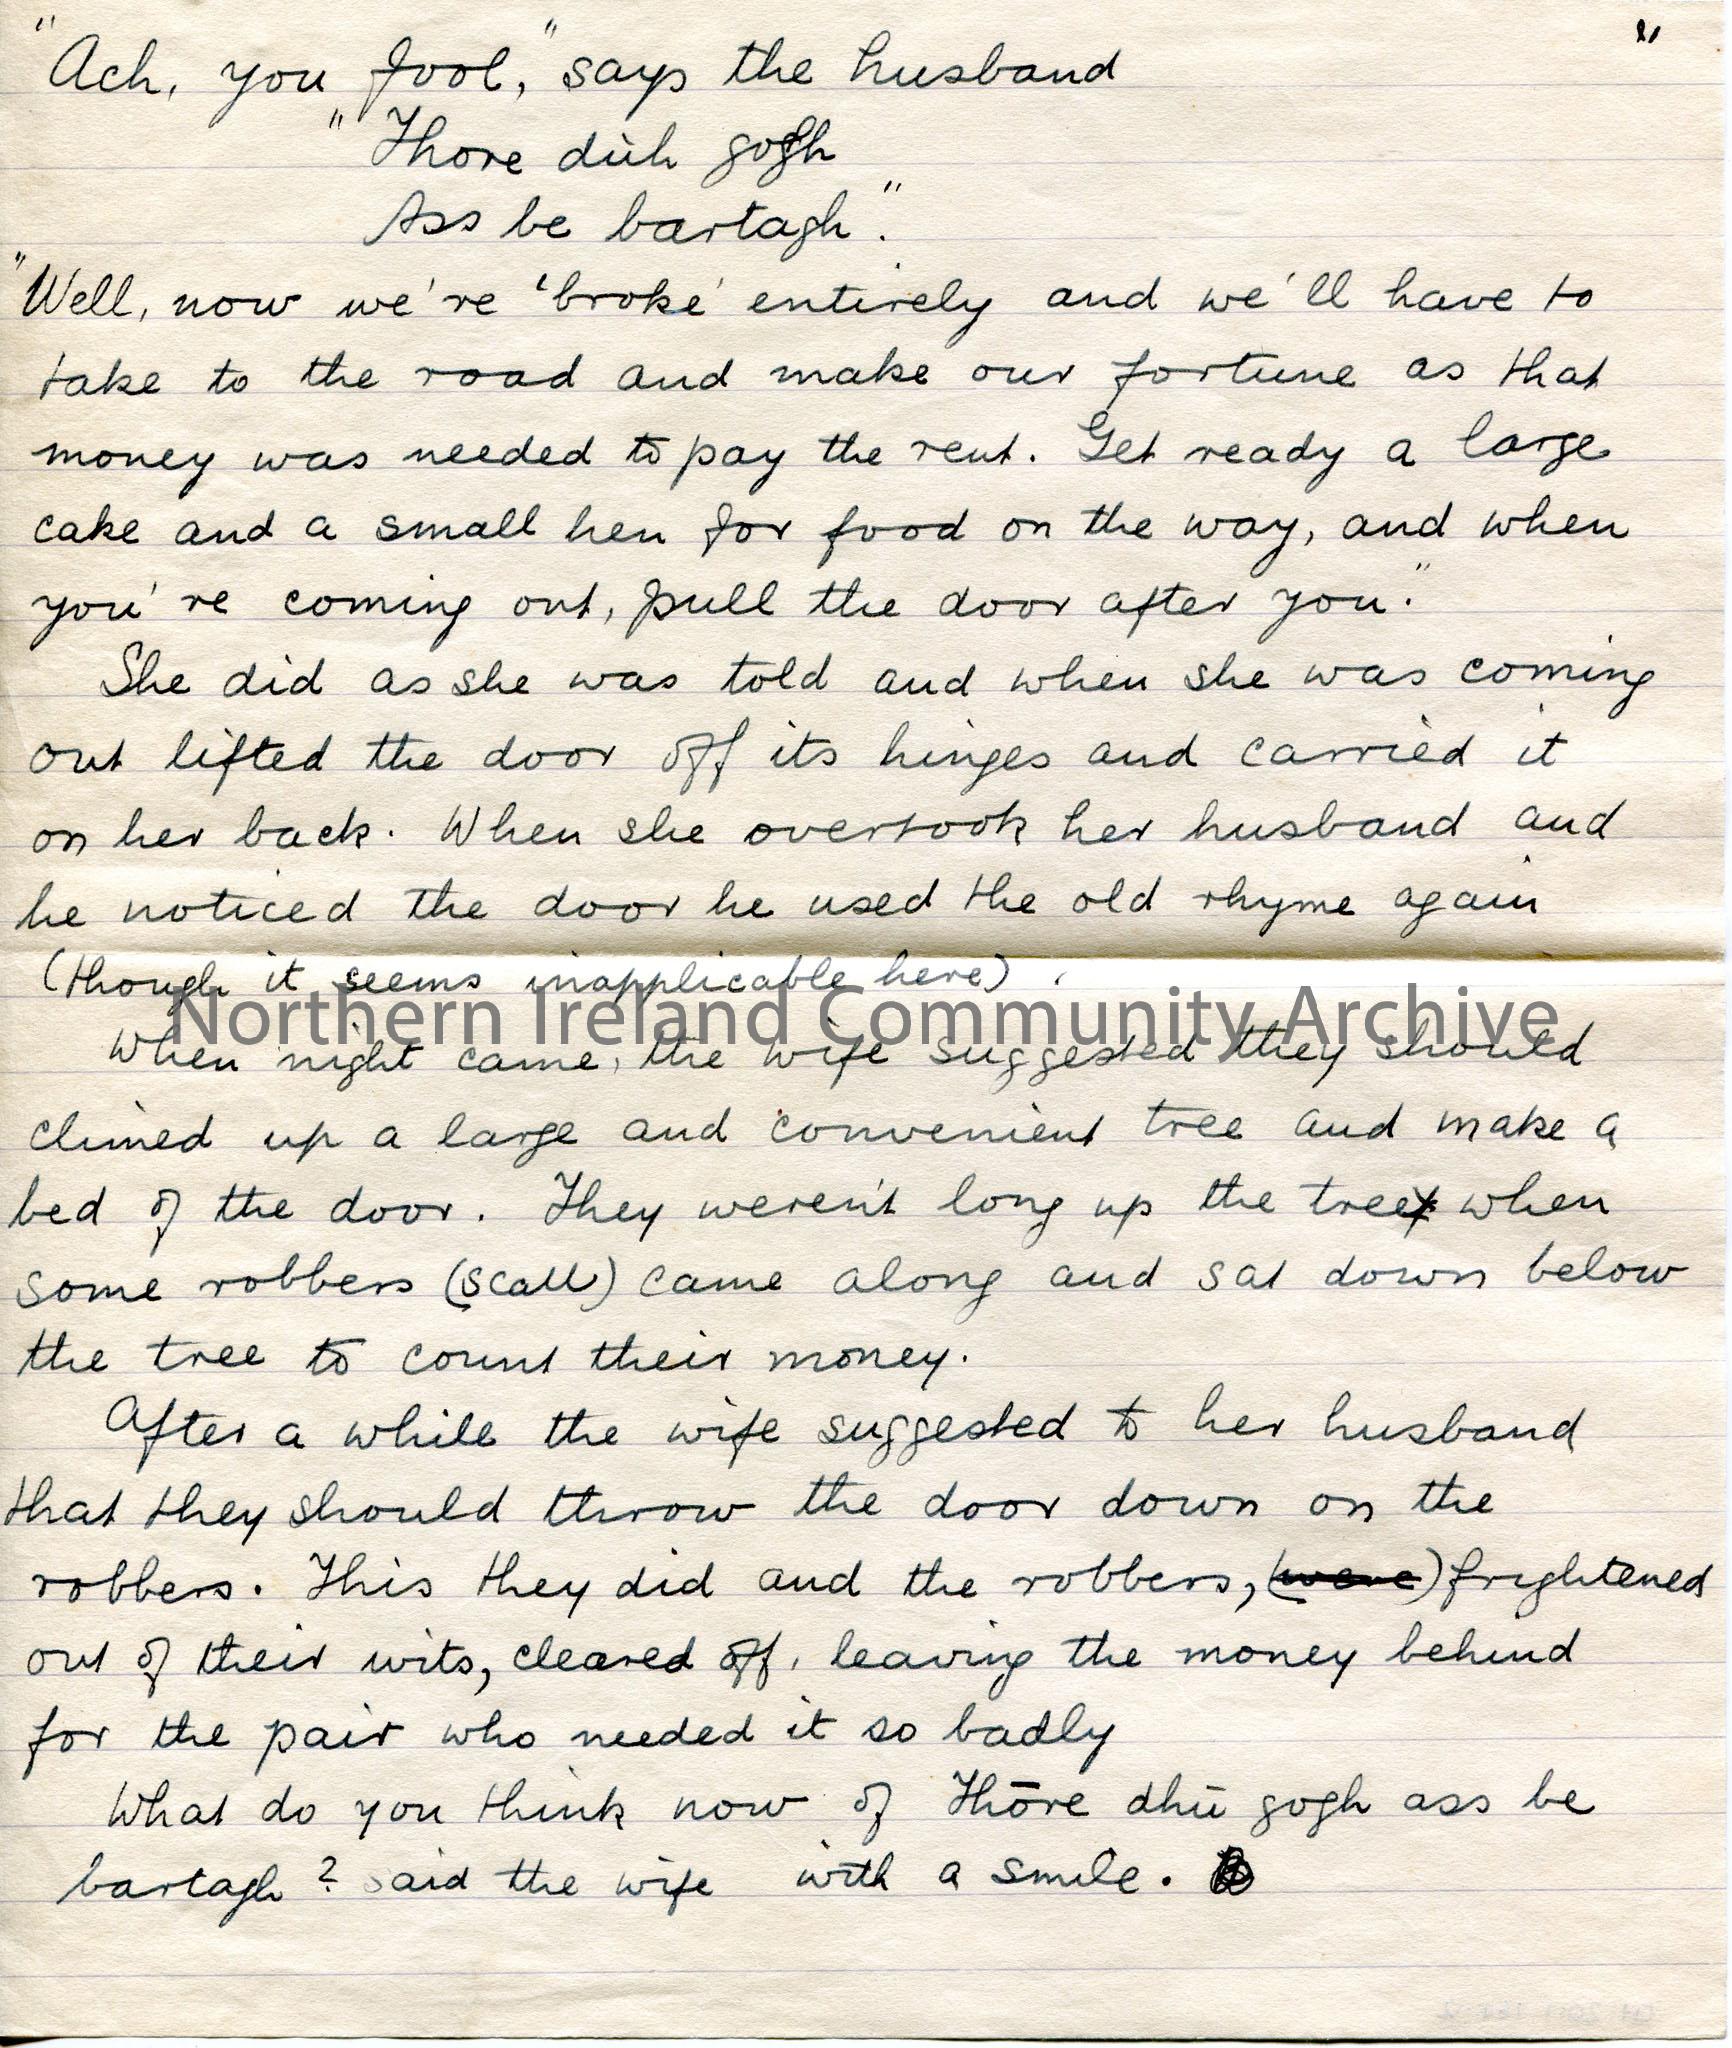 "Ach, you fool," says the husband "
"Thore dúh gogh
Ass be bartagh".
"Well, now we're 'broke' entirely and we'll have to
take to the road and make our fortune as that
money was needed to pay the rent. Get ready a large
cake and a small hen for food on the way, and when
you're coming out, pull the door after you."
She did as she was told and when she was coming
out lifted the door off its hinges and carried it
on her back. When she overtook her husband and
he noticed the door he used the old rhyme again
(though it seems inapplicable here).
Northern Ireland Community Archive
When night came, the wife suggested they should
climed up a large and convenient tree and make a
bed of the door. They weren't long up the tree when
some robbers (scall) came along and sat down below
the tree to count their money.
After a while the wife suggested to her husband
that they should throw the door down on the
robbers. This they did and the robbers, (were) frightened
out of their wits, cleared off, leaving the money behind
for the pair who needed it so badly
What do you think now of Thōre dhū gogh ass be
bartagh? said the wife with a smile.